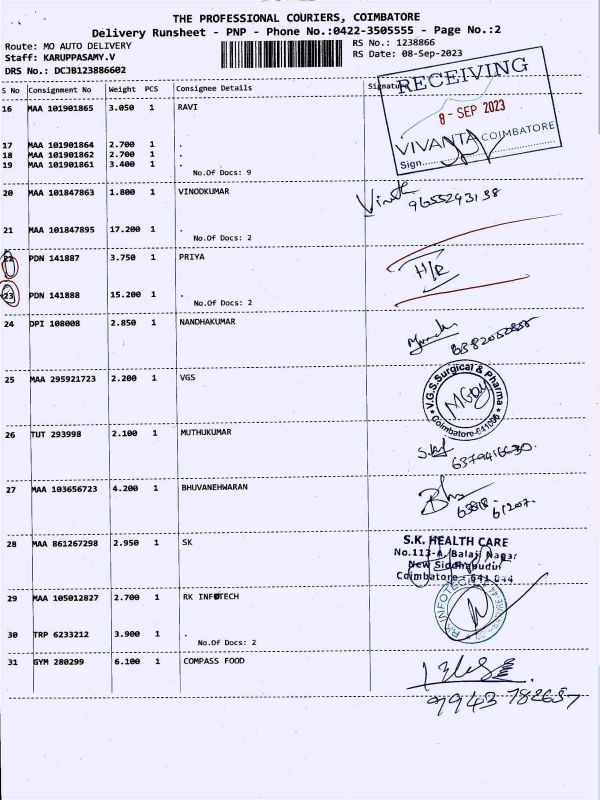 THE PROFESSIONAL COURIERS, COIMBATORE
Delivery Runsheet - PNP - Phone No.:0422-3505555 - Page No.:2
Route: MO AUTO DELIVERY RS No.: 1238866
Staff: KARUPPASAMY.V RS Date: 08-Sep-2023
DRS No.: DCJB123886602
S No Consignment No Weight PCS Consignee Details Signature
RECEIVING
8 - SEP 2023
VIVANTA COIMBATORE
Sign.
16 MAA 101901865 3.050 1 RAVI
17 MAA 101901864 2.700 1 .
18 MAA 101901862 2.700 1 .
19 MAA 101901861 3.400 1 .
No.Of Docs: 9
20 MAA 101847863 1.800 1 VINODKUMAR
9655243138
21 MAA 101847895 17.200 1 .
No.Of Docs: 2
22 PDN 141887 3.750 1 PRIYA
H/R
23 PDN 141888 15.200 1 .
No.Of Docs: 2
24 DPI 108008 2.850 1 NANDHAKUMAR
25 MAA 295921723 2.200 1 VGS
V.G.S.Surgical & Pharma
Coimbatore-641006
26 TUT 293998 2.100 1 MUTHUKUMAR
27 MAA 103656723 4.200 1 BHUVANEHWARAN
28 MAA 861267298 2.950 1 SK
S.K. HEALTH CARE
No.113-A, Balaji Nagar
New Siddhapudur
Coimbatore - 641 044
29 MAA 105012827 2.700 1 RK INFOTECH
RK INFOTECH
30 TRP 6233212 3.900 1 .
No.Of Docs: 2
31 GYM 280299 6.100 1 COMPASS FOOD
9943782657